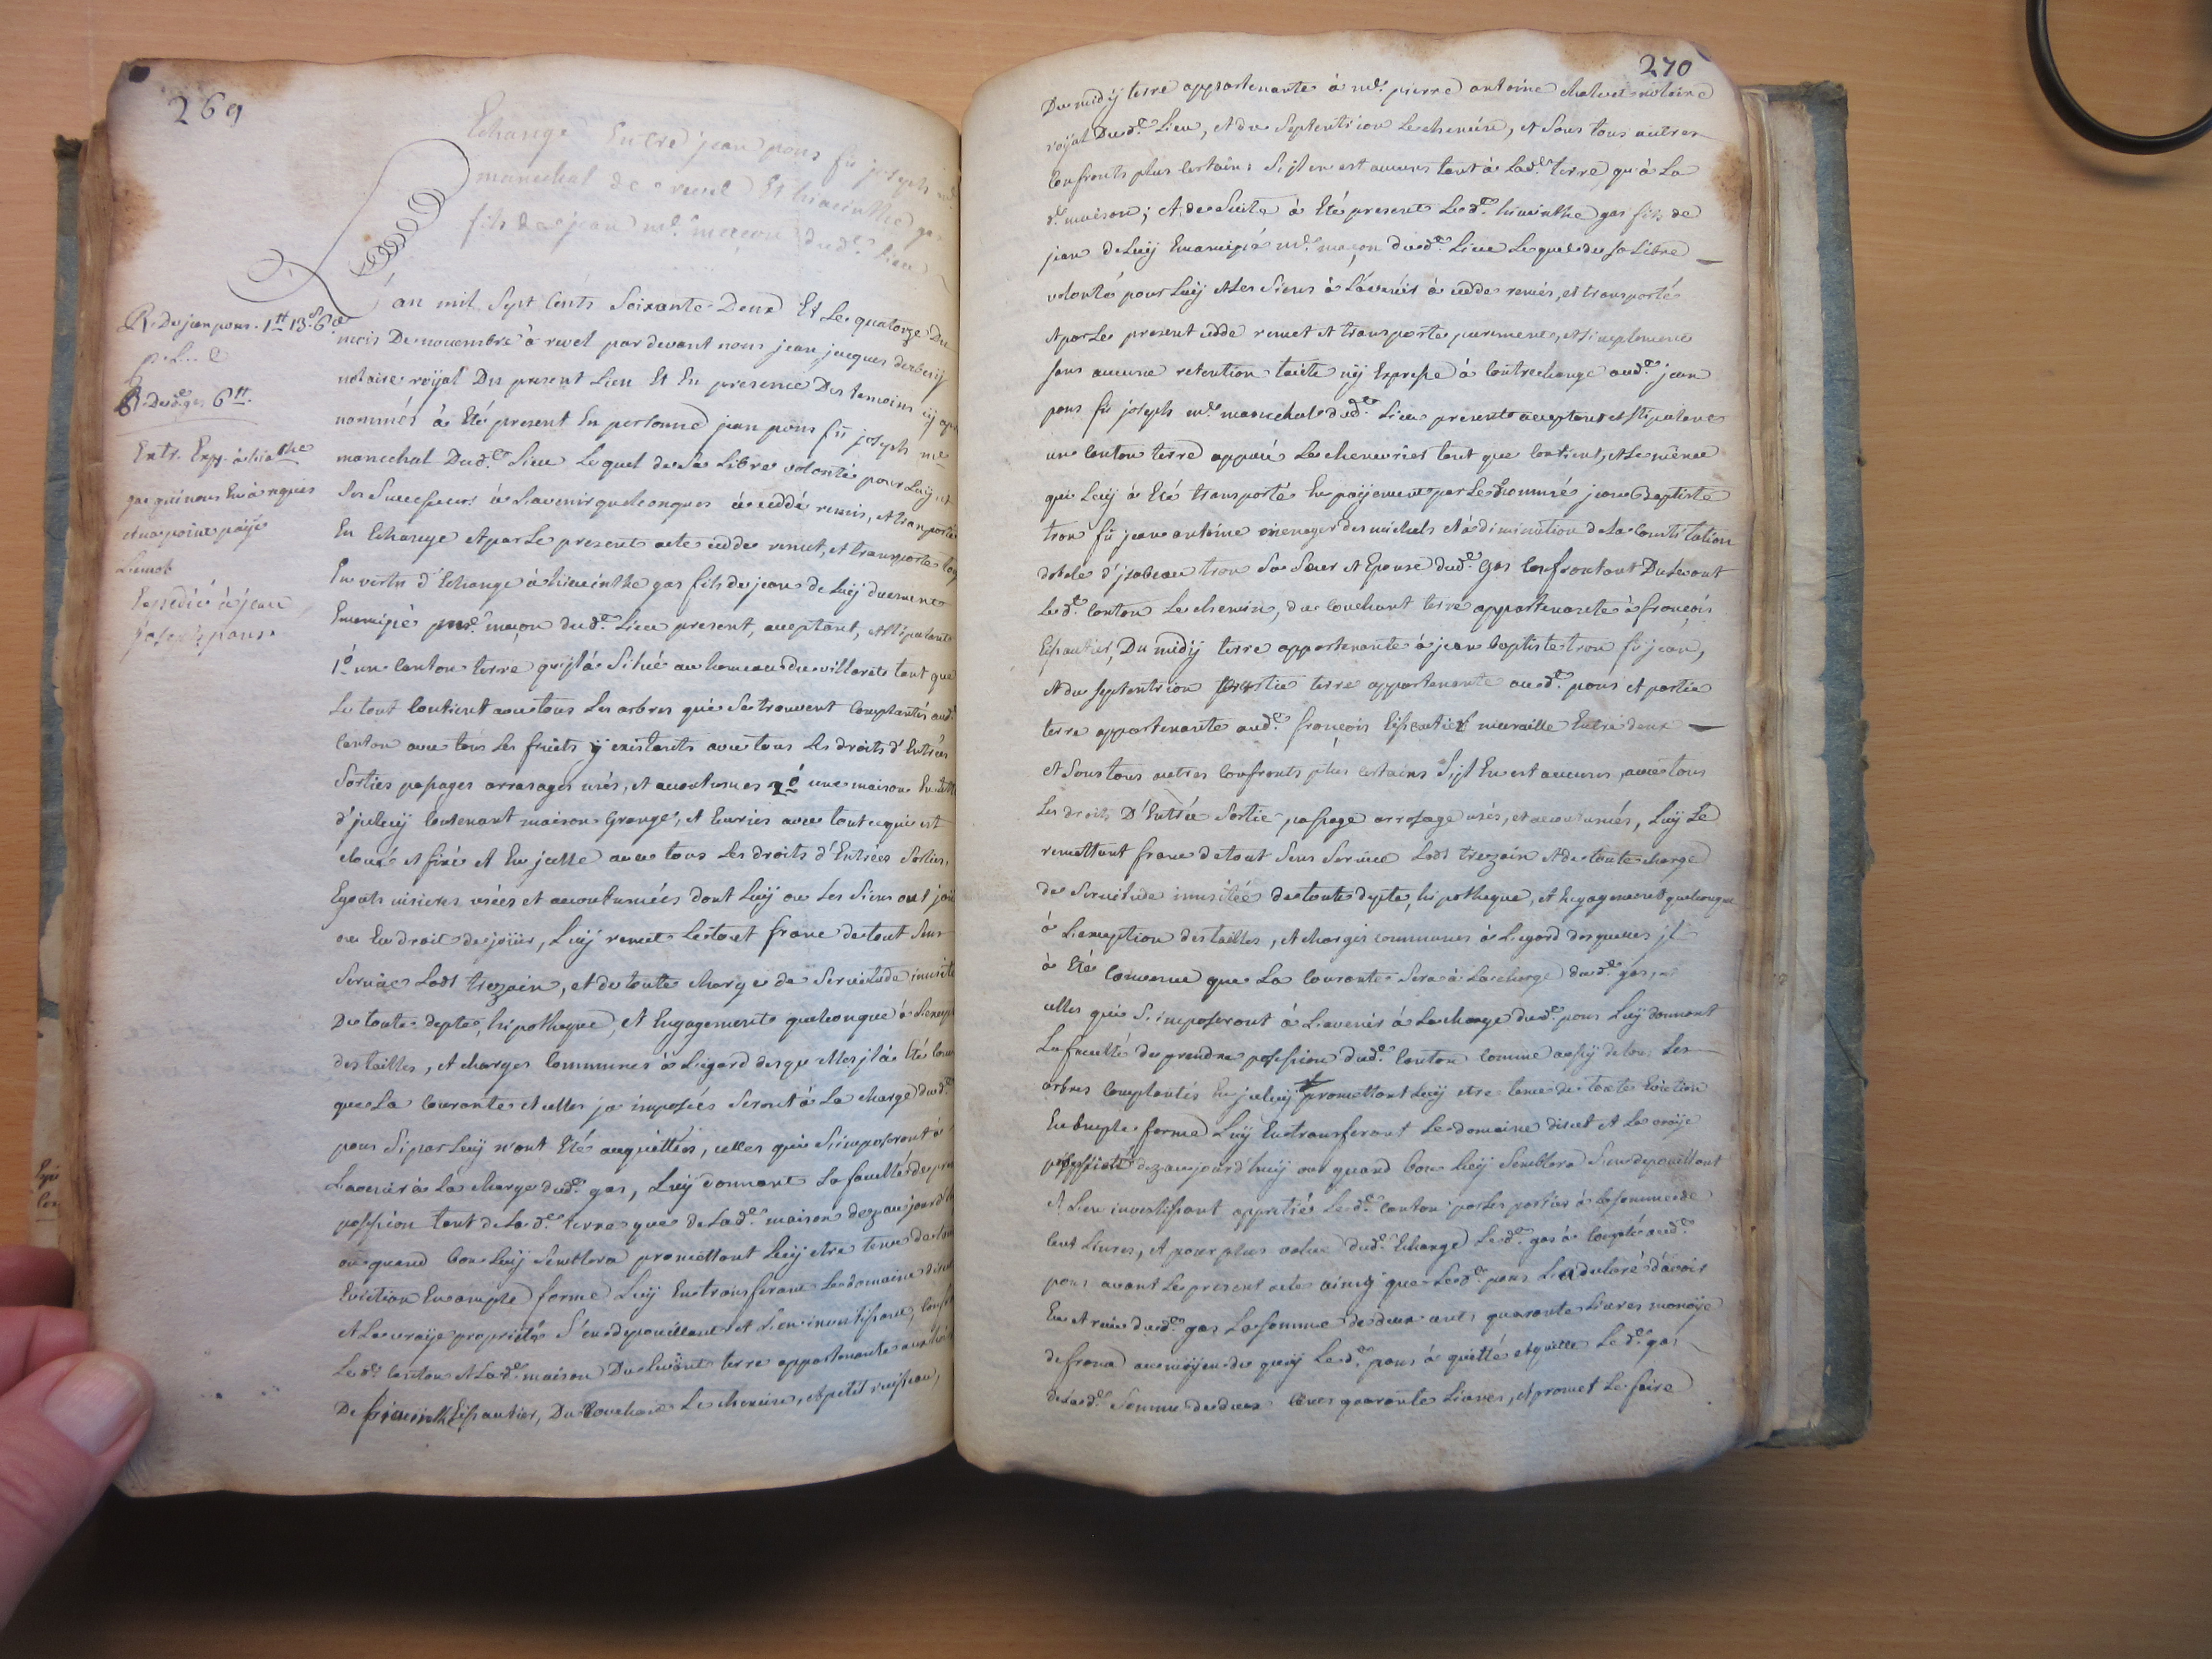 269
Echange Entre jean pons fû joseph
marechal de revel Et hiacinthe gas
fils de jean m.e maçon dud.t lieu
R. De jean pons. 1# 13s 6d
R. Dud. gas 6#.
Extr. Exp. à hia.the
gas qui nous En a requis
et na point païé
Lemot
Expedié à jean
joseph pons
L'an mil Sept Cents Soixante Deux Et Le quatorze Du
mois De novembre à revel par devant nous jean jacques derbesy
notaire roÿal Du present Lieu Et En presence Des temoins cy ap
nommés à Eté present En personne jean pons fû joseph m.e
marechal Dud.t Lieu Lequel de Sa Libre volonté pour Luÿ et
Ses Successeurs à L'avenir quelconques à ceddé remis, et transporté
En Echange et par Le present acte cedde remet, et transporte
En vertu d'Echange à hiacinthe gas fils de jean de Luÿ duement
Emancipé m.e maçon dud.t Lieu present, acceptant, et Stipulant
1° un Canton terre qu'jl à Situé au hameau du villaret tant que
Le tout Contient avec tous Les arbres qui Se trouvent Complantés aud.
Canton avec tous Les fruits ÿ existants avec tous Les droits d'Entrées
Sorties passages arrosages usés, et accoutumés 2° une maison En
d'jceluÿ Contenant maison Grange, et Ecuries avec tout ce qui est
cloué et fixé et En jcelle avec tous Les droits d'Entrées Sorties,
Egouts visieres usées et accoutumées dont Luÿ ou Les Siens ont joui
ou En droit de joüir, Luÿ remet Le tout franc de tout Sens
Service Lods trezain, et de toute charge de Servitude inusitée
De toute depte, hipotheque, et Engagements quelconque à L'excep
des tailles, et charges Communes à L'egard desquelles jl à Eté conv
que La Courante et celles ja imposées Seront à La charge dud.
pons Si par Luÿ n'ont Eté acquittées, celles qui S'imposeront à
L'avenir à La charge dud. gas, Luÿ donnant La faculté de pre
possession tant de Lad.e terre que de Lad.e maison dez aujourd'h
ou quand bon Luÿ Semblera promettant Luÿ etre tenu de toute
Eviction En ample forme Luÿ En transferant Le domaine direct
et La vraÿe proprieté S'en depouillant et L'en investissant, Confr
Le d. Canton et Lad.e maison Du Levant terre appartenante aux
De hiacinthe Eissautier, Du Couchant Le chemin, et petit ruisseau,
270
Du midÿ terre appartenante à m.e pierre antoine chalvet notaire
roÿal Dud.t Lieu, et du Septentrion Le chemin, et Sous tous autres
Confronts plus Certains S'jl en est aucuns tant à Lad.e terre qu'à La
d.e maison; et de Suite à Eté present Led.t hiacinthe gas fils de
jean de Luÿ Emancipé m.e maçon dud.t Lieu Lequel de Sa Libre
volonté pour Luÿ et Les Siens à L'avenir à cedde remis, et transporté
et par Le present cedde remet et transporte purement, et Simplement
Sans aucune retention tacite nÿ Expresse à Contrechange aud.t jean
pons fû joseph m.e marechal dud.t Lieu present acceptant et Stipulant
un Canton terre appellé La cheneviere tant que Contient, et Le même
qui Luÿ à Eté transporté En païement par Le nommé jean Baptiste
tron fû jean antoine menager des michels et à diminution de La Constitution
dotale d'jsabeau tron Sa Sœur et Epouse dud.t gas Confrontant Du Levant
Led.t Canton Le chemin, du Couchant terre appartenante à françois
Eissautier, Du midÿ terre appartenante à jean baptiste tron fû jean,
et du Septentrion partie terre appartenante aud.t pons et partie
terre appartenante aud.t françois Eissautier muraille Entre deux
et Sous tous autres Confronts plus Certains S'jl En est aucuns, avec tous
Les droits D'Entrée Sortie passage arrosage usés, et accoutumés, Luÿ Le
remettant franc de tout Sens Service Lods trezain et de toute charge
de Servitude inusitée de toute depte, hipotheque, et Engagement quelconque
à L'exception des tailles, et charges communes à L'egard desquelles jl
à Eté Convenu que La Courante Sera à La charge dud.t gas, et
celles qui S'imposeront à L'avenir à La charge dud.t pons Luÿ donnant
La faculté de prendre possession dud.t Canton Comme aussÿ de tous Les
arbres Complantés En jceluÿ promettant Luÿ etre tenu de toute Eviction
En ample forme Luÿ En transferant Le domaine direct et La vraÿe
possession dez aujourd'huÿ ou quand bon Luÿ Semblera S'en depouillant
et L'en investissant appretié Led.t Canton par Les parties à La Somme de
Cent Livres, et pour plus value dud.t Echange Led.t gas à Compté aud.t
pons avant Le present acte ainsÿ que Led.t pons L'a declaré d'avoir
Eu et reçu dud.t gas La Somme de deux cents quarante Livres monoÿe
de france au moÿen de quoÿ Led.t pons à quitté et quitte Led.t gas
de Lad.e Somme de deux Cents quarante Livres, et promet Le faire